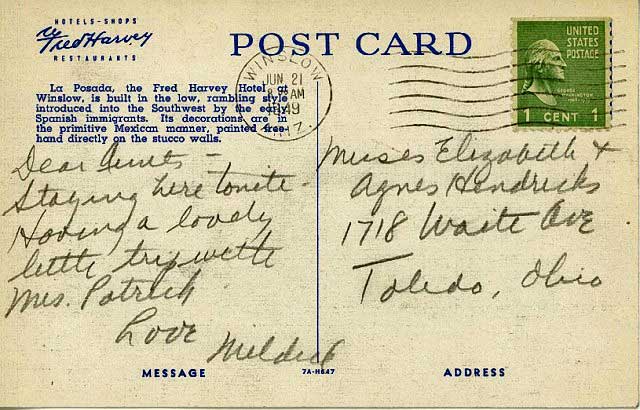 HOTELS-SHOPS
Fred Harvey
RESTAURANTS
POST CARD
La Posada, the Fred Harvey Hotel at
Winslow, is built in the low, rambling style
introduced into the Southwest by the early
Spanish immigrants. Its decorations are in
the primitive Mexican manner, painted free-
hand directly on the stucco walls.
WINSLOW
JUN 21
AM
1949
ARIZ.
UNITED
STATES
POSTAGE
1 CENT 1
Dear Aunts -
Staying here tonite -
Having a lovely
little trip with
Mrs. Patrick
Love
Mildred
Misses Elizabeth &
Agnes Hendricks
1718 Waite Ave
Toledo, Ohio
MESSAGE
7A-H647
ADDRESS